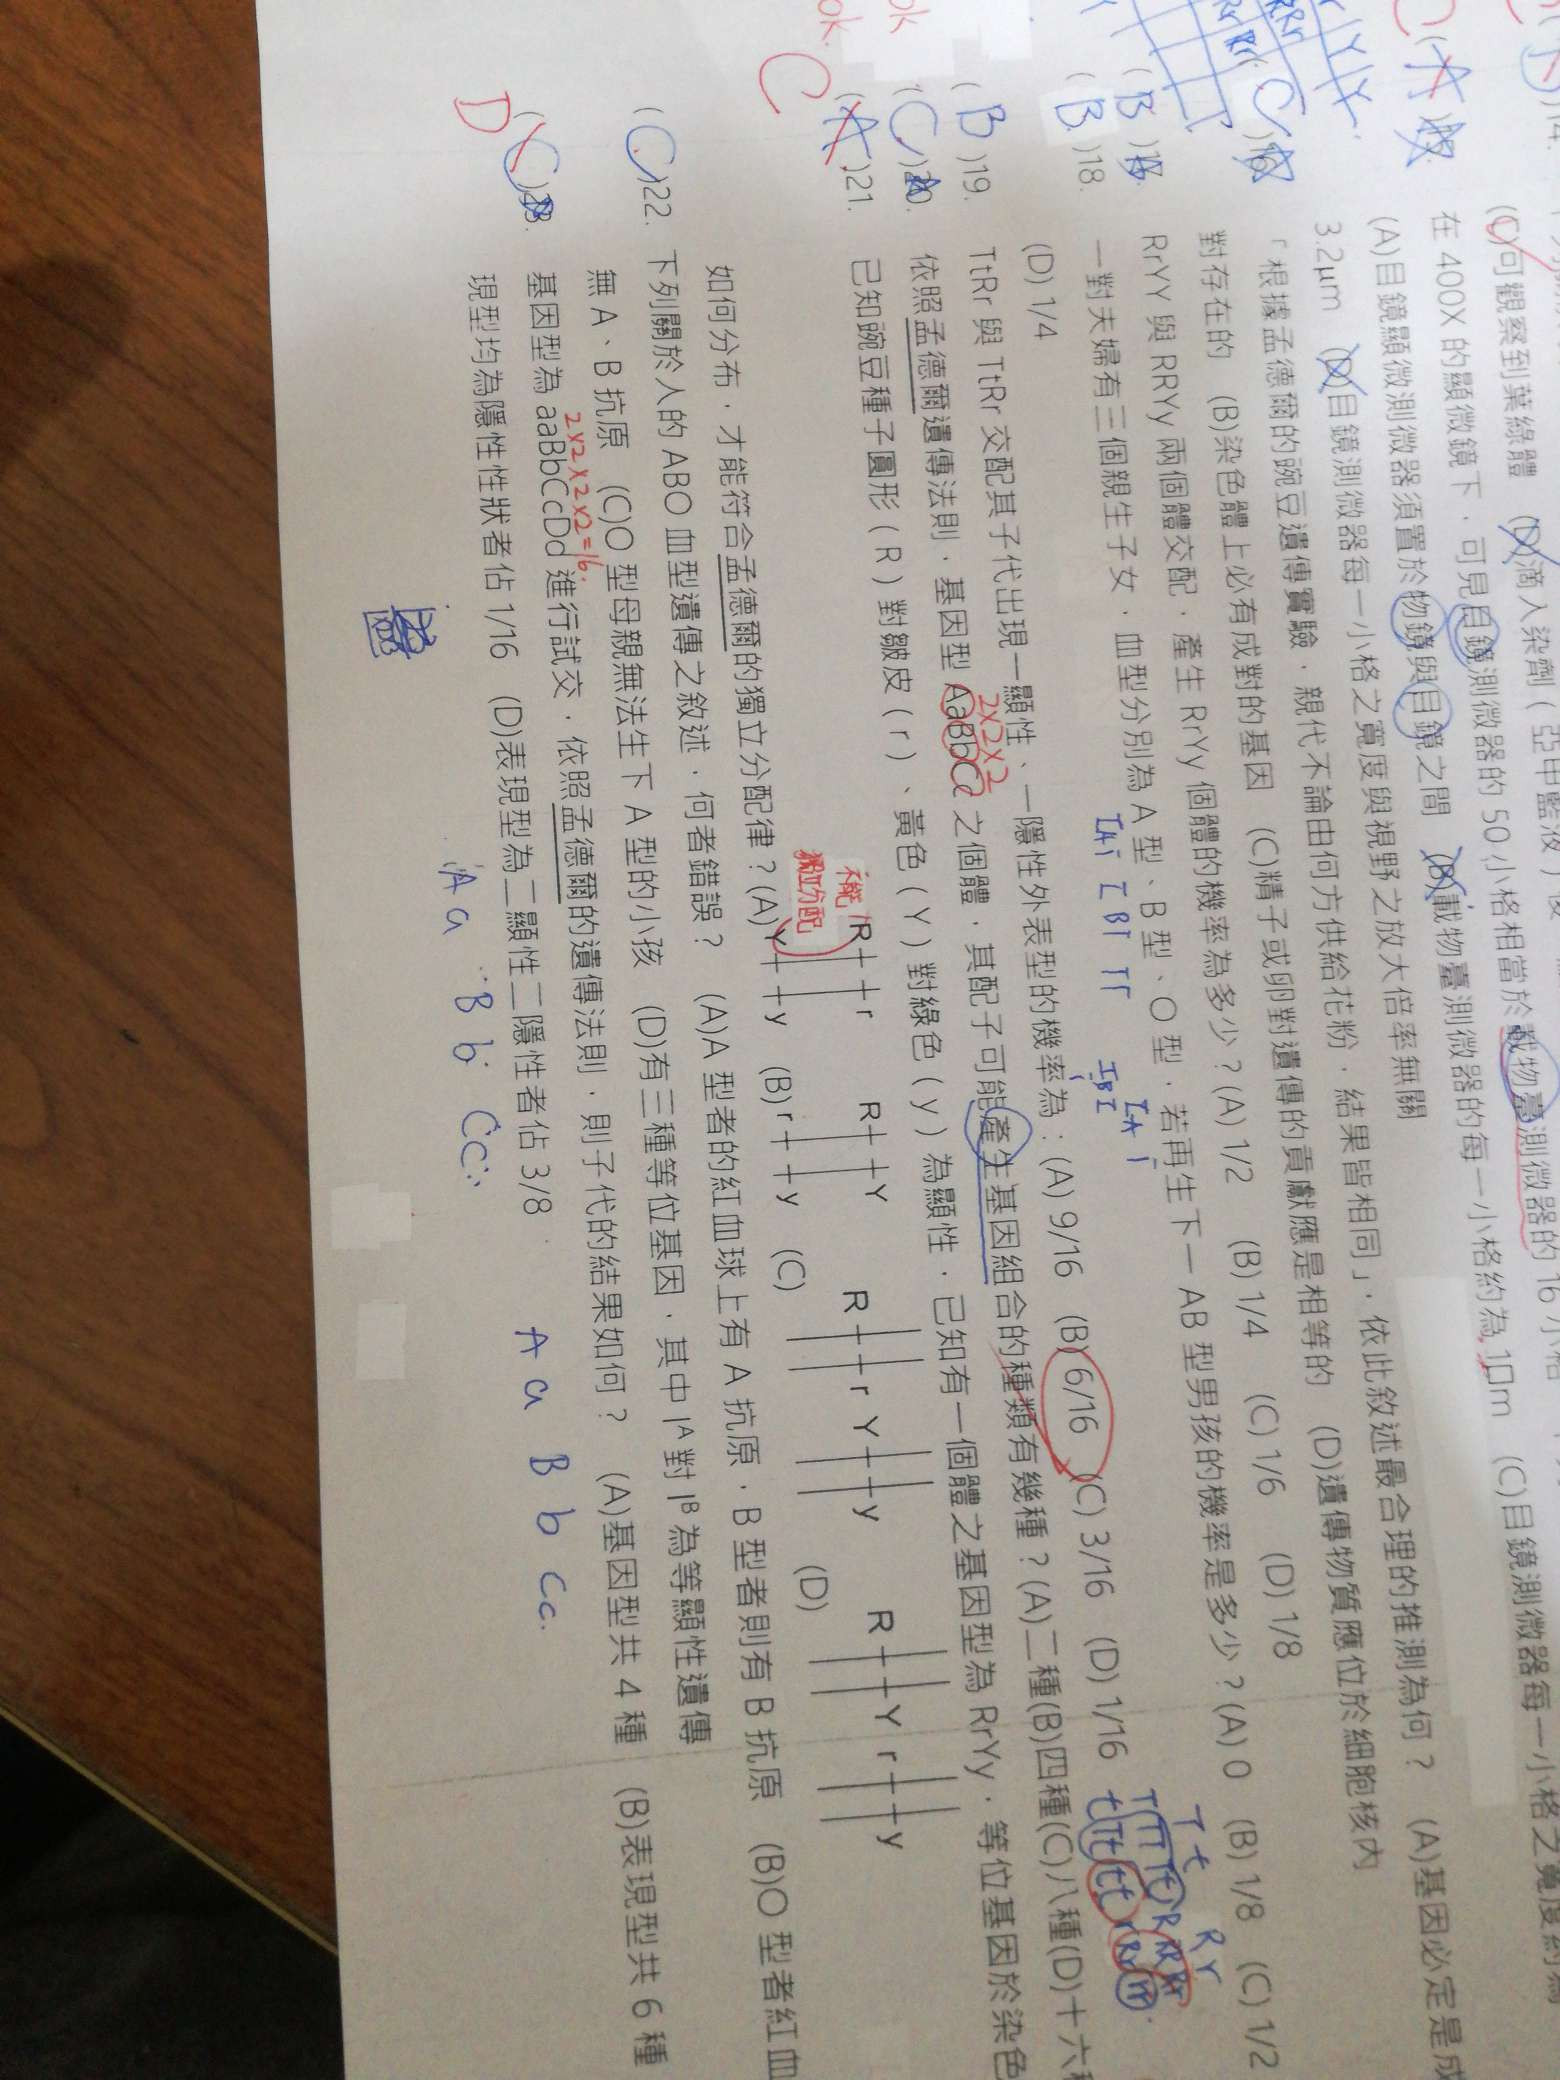 (C)可觀察到葉綠體 (D)滴入染劑(亞甲藍液)
在 400X 的顯微鏡下，可見目鏡測微器的 50 小格相當於載物臺測微器的 16 小格
(A)目鏡顯微測微器須置於物鏡與目鏡之間 (B)載物臺測微器的每一小格約為 10m (C)目鏡測微器每一小格之寬度約為
3.2μm (D)目鏡測微器每一小格之寬度與視野之放大倍率無關
(C)16. 「根據孟德爾的豌豆遺傳實驗，親代不論由何方供給花粉，結果皆相同」，依此敘述最合理的推測為何？ (A)基因必定是成
對存在的 (B)染色體上必有成對的基因 (C)精子或卵對遺傳的貢獻應是相等的 (D)遺傳物質應位於細胞核內
(B)17. RrYY 與 RRYy 兩個體交配，產生 RrYy 個體的機率為多少？(A) 1/2 (B) 1/4 (C) 1/6 (D) 1/8
(B)18. 一對夫婦有三個親生子女，血型分別為 A 型、B 型、O 型，若再生下一 AB 型男孩的機率是多少？(A) 0 (B) 1/8 (C) 1/2
(D) 1/4
(B)19. TtRr 與 TtRr 交配其子代出現一顯性、一隱性外表型的機率為：(A) 9/16 (B) 6/16 (C) 3/16 (D) 1/16
T t R r
2×2×2
(C)20. 依照孟德爾遺傳法則，基因型 AaBbCc 之個體，其配子可能產生基因組合的種類有幾種？(A)二種(B)四種(C)八種(D)十六
C (A)21. 已知豌豆種子圓形(R)對皺皮(r)、黃色(Y)對綠色(y)為顯性，已知有一個體之基因型為 RrYy，等位基因於染色
不能獨立分配
R r R Y R r Y y R Y r y
如何分布，才能符合孟德爾的獨立分配律？(A) Y y (B) r y (C) (D)
(C)22. 下列關於人的 ABO 血型遺傳之敘述，何者錯誤？ (A)A 型者的紅血球上有 A 抗原，B 型者則有 B 抗原 (B)O 型者紅血
無 A、B 抗原 (C)O 型母親無法生下 A 型的小孩 (D)有三種等位基因，其中 Iᴬ對 Iᴮ 為等顯性遺傳
2×2×2×2=16.
D (C)23. 基因型為 aaBbCcDd 進行試交，依照孟德爾的遺傳法則，則子代的結果如何？ (A)基因型共 4 種 (B)表現型共 6 種
現型均為隱性性狀者佔 1/16 (D)表現型為二顯性二隱性者佔 3/8
A a B b Cc
A a B b Cc.